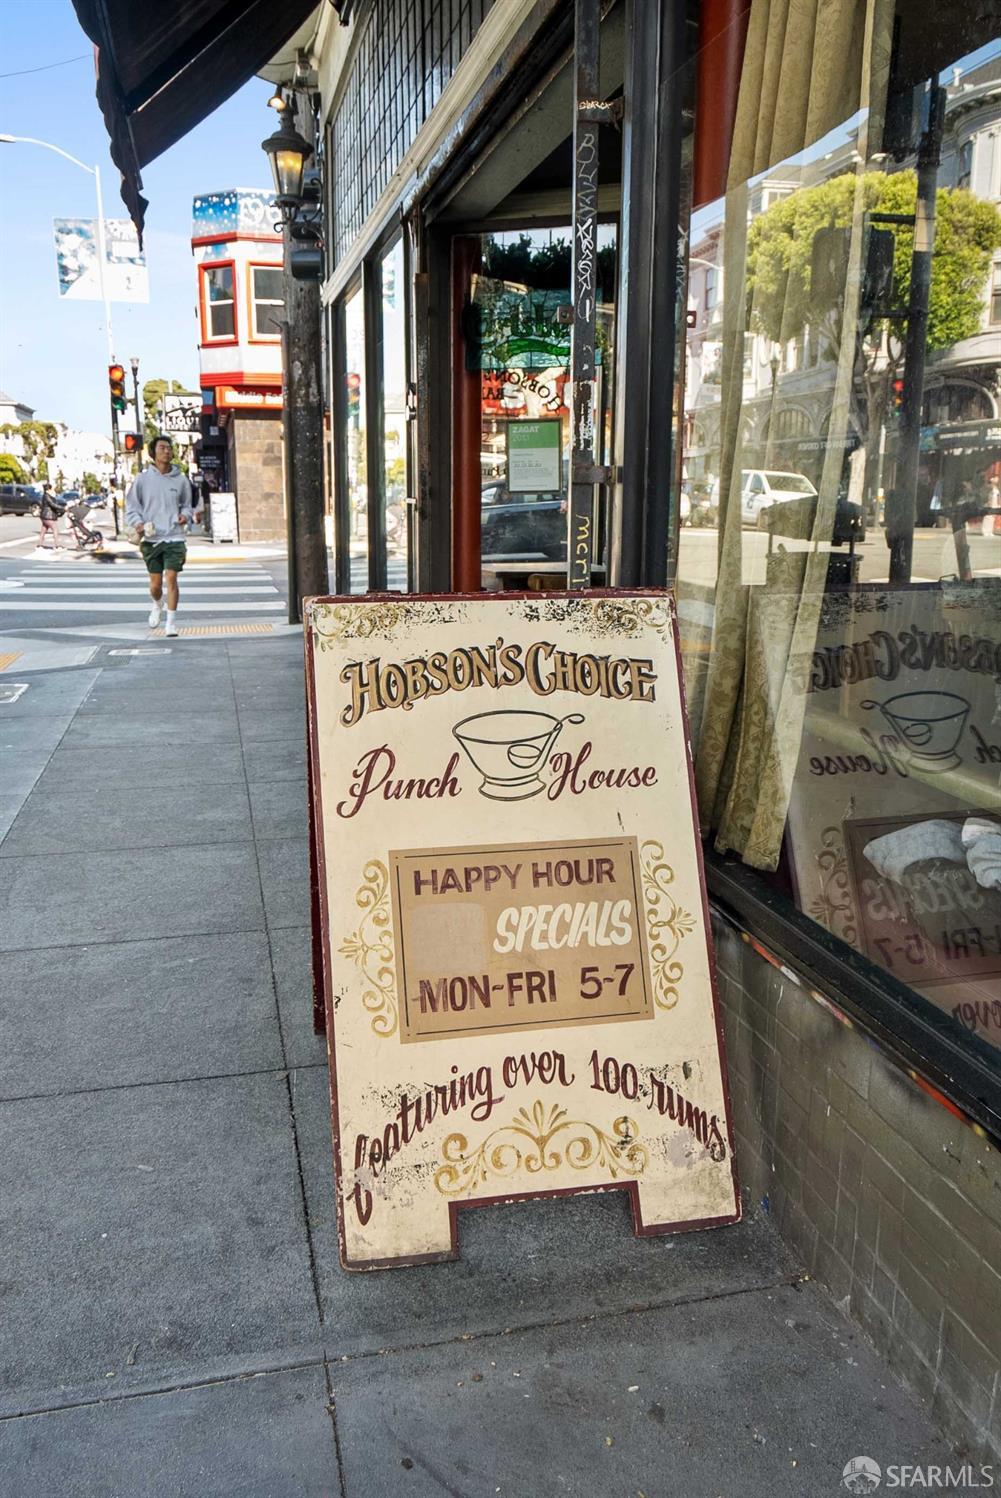 HOBSON'S CHOICE
Punch House
HAPPY HOUR
SPECIALS
MON-FRI 5-7
featuring over 100 rums
ZAGAT
2013
SFARMLS